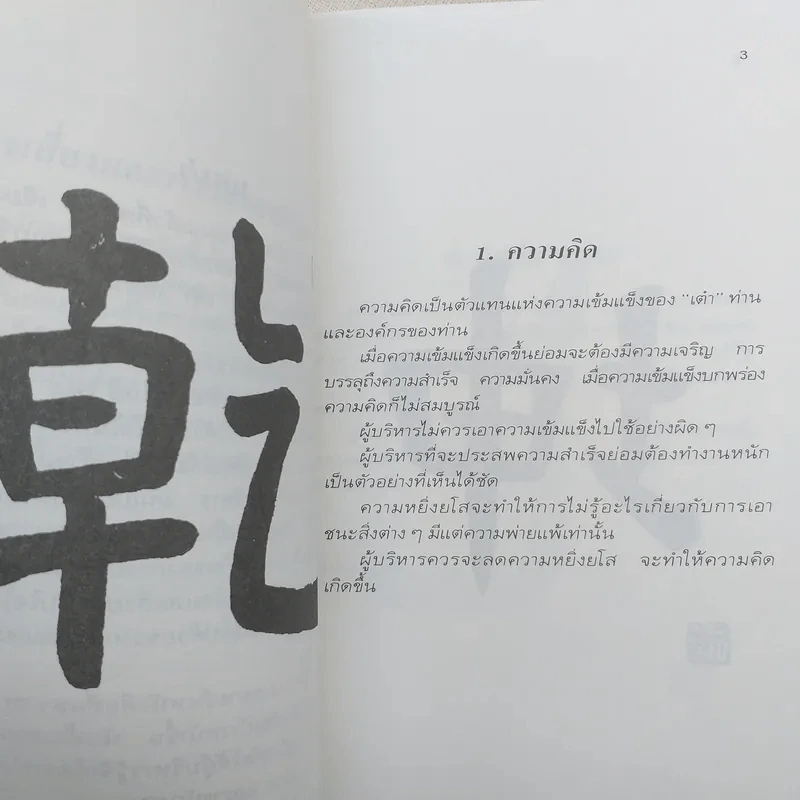 乾
3
1. ความคิด
ความคิดเป็นตัวแทนแห่งความเข้มแข็งของ “เต๋า” ท่าน
และองค์กรของท่าน
เมื่อความเข้มแข็งเกิดขึ้นย่อมจะต้องมีความเจริญ การ
บรรลุถึงความสำเร็จ ความมั่นคง เมื่อความเข้มแข็งบกพร่อง
ความคิดก็ไม่สมบูรณ์
ผู้บริหารไม่ควรเอาความเข้มแข็งไปใช้อย่างผิด ๆ
ผู้บริหารที่จะประสพความสำเร็จย่อมต้องทำงานหนัก
เป็นตัวอย่างที่เห็นได้ชัด
ความหยิ่งยโสจะทำให้การไม่รู้อะไรเกี่ยวกับการเอา
ชนะสิ่งต่าง ๆ มีแต่ความพ่ายแพ้เท่านั้น
ผู้บริหารควรจะลดความหยิ่งยโส จะทำให้ความคิด
เกิดขึ้น